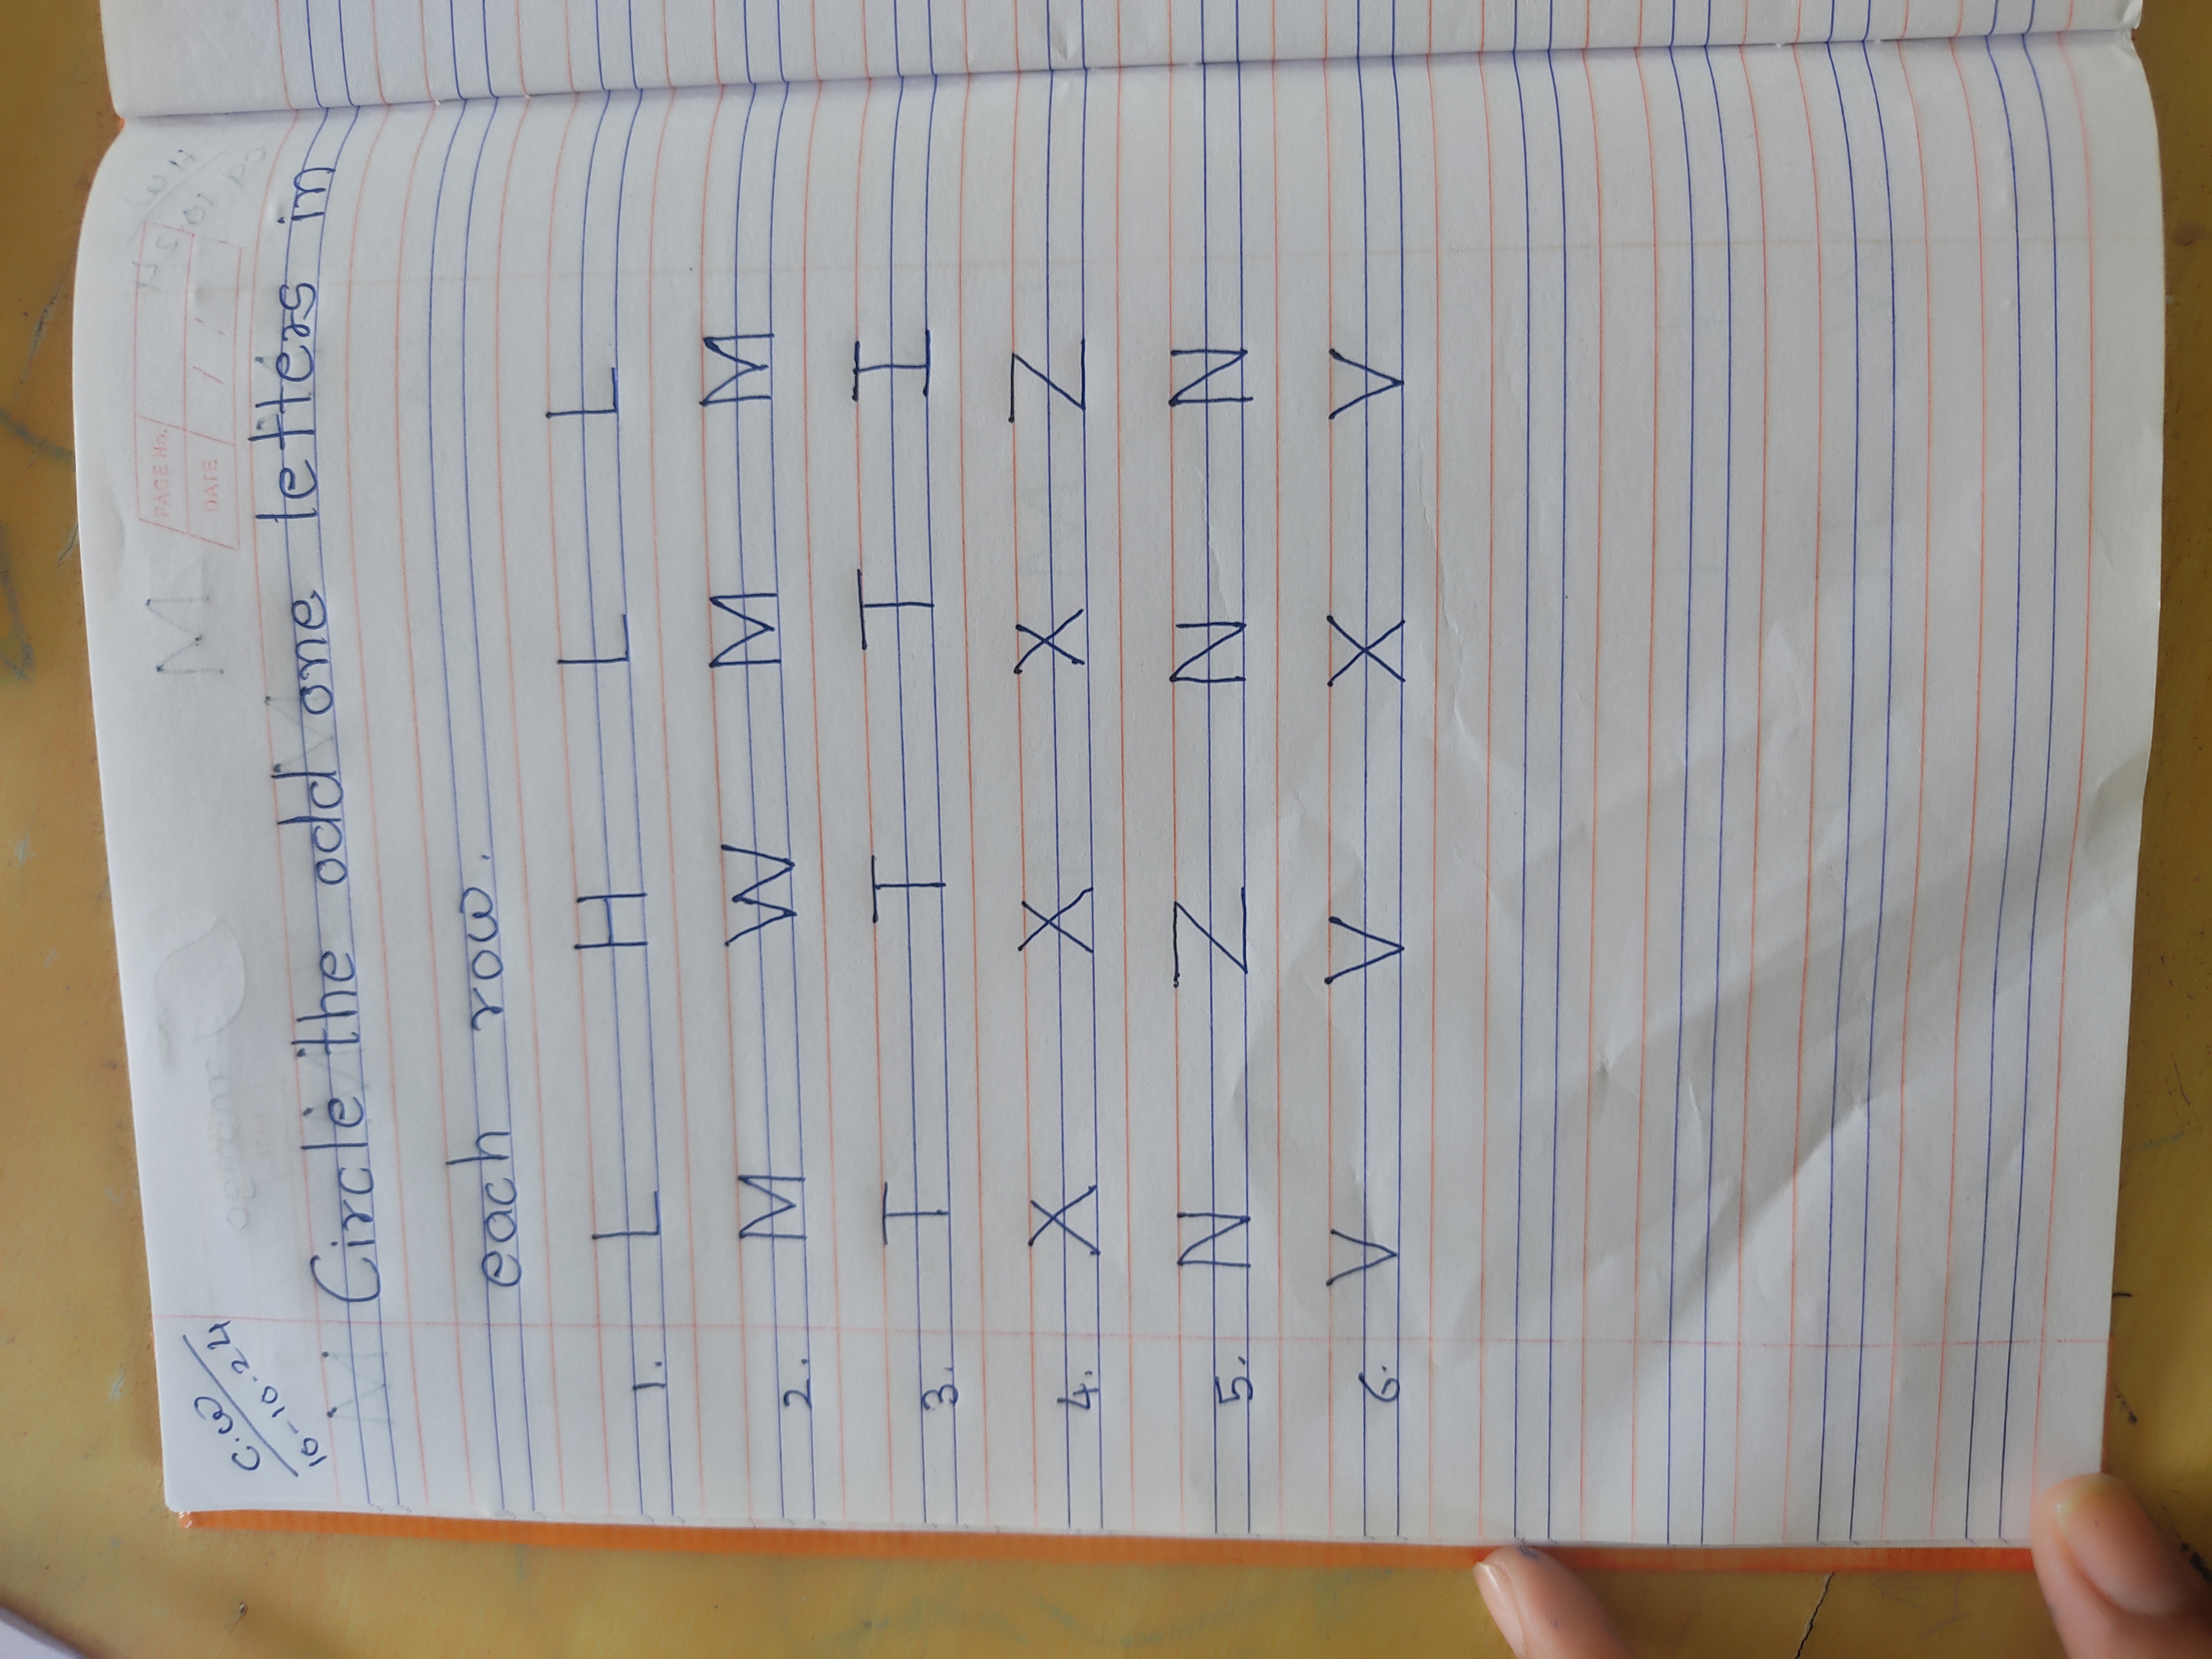 C.W
16-10-24
PAGE No.
DATE / /
Circle the odd one letters in
each row.
1. L H L L
2. M W M M
3. T T T I
4. X X X Z
5. N Z N N
6. V V X V